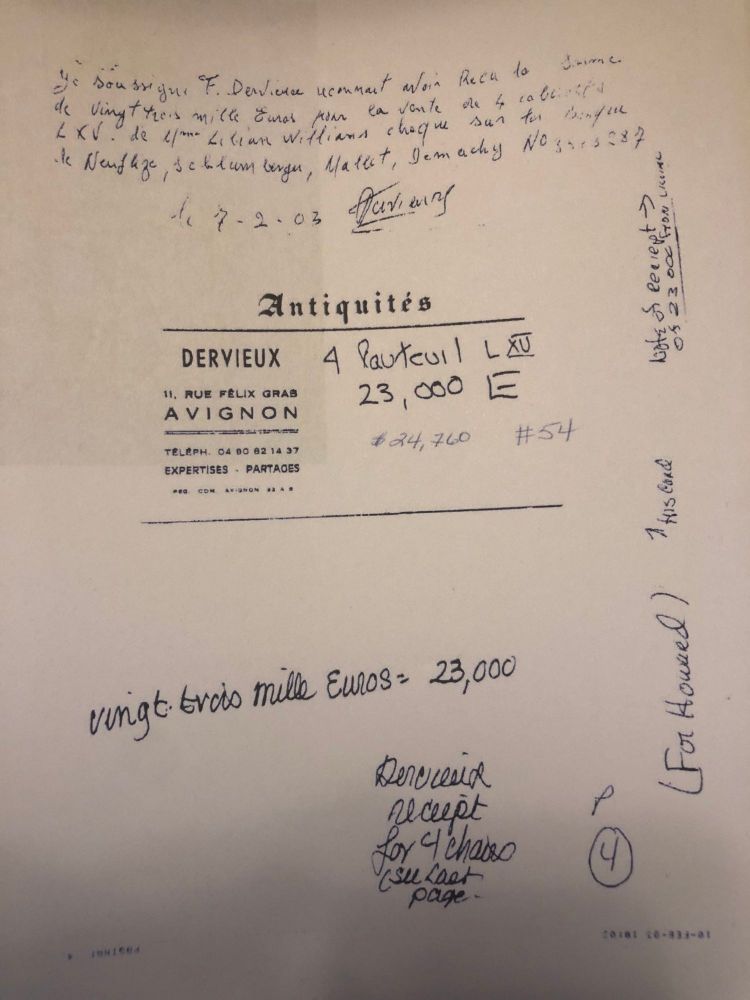 Je soussigné F. Dervieux reconnait avoir Recu la Somme
de vingt trois mille Euros pour la vente de 4 cabriolets
L XV. de Mme Lilian Williams cheque sur la Banque
de Neuflize, Schlumberger, Mallet, Demachy NO
le 7-2-03 Dervieux
Antiquités
DERVIEUX
11, RUE FÉLIX GRAS
AVIGNON
TÉLÉPH. 04 90 82 14 37
EXPERTISES - PARTAGES
REG. COM. AVIGNON
4 Fauteuil L XV
23,000 E
$24,760 #54
Note of Receipt →
of 23 000 from Lillian
↑ His Card
(For Howard)
vingt-trois mille Euros = 23,000
Dervieux
receipt
for 4 chairs
(see Last
page.
P
4
10-FEB-03 18:02